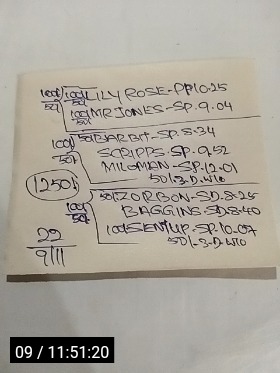 100/ 100/ LILY ROSE-PP10.25
50/ 50/
100/ MR JONES-SP.9.04
50/
50/ BARBIT-SP.8.34
100/ SCRIPPS.SP.9.52
50/
MILKMAN-SP.12.01
50/-3-D.W10
1250/
50/ ZORBON-SD.8.25
100/ BAGGINS.SD8.40
50/
100/ SENTUP-SP.10.07
50/-3-D.W10
22
9/11
09 / 11:51:20